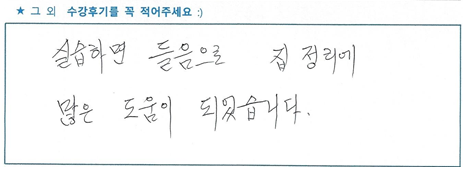 ★ 그 외 수강후기를 꼭 적어주세요 :)
실습하면 들음으로 집 정리에
많은 도움이 되었습니다.